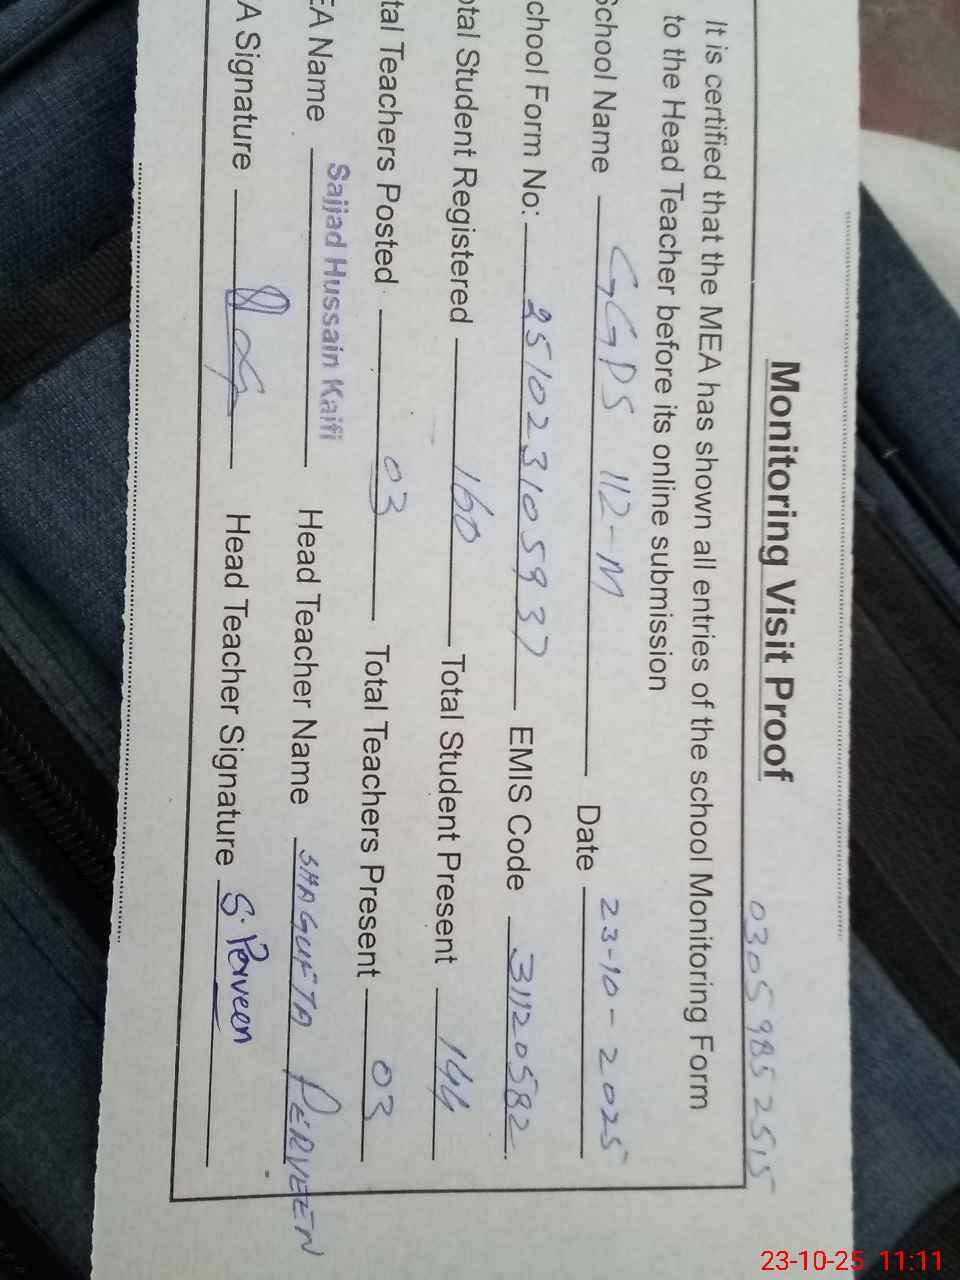 Monitoring Visit Proof
0305 9852515
It is certified that the MEA has shown all entries of the school Monitoring Form
to the Head Teacher before its online submission
School Name GGPS 112-M Date 23-10-2025
chool Form No: 2510231059 37 EMIS Code 31120582
otal Student Registered 160 Total Student Present 144
tal Teachers Posted 03 Total Teachers Present 03
EA Name Sajjad Hussain Kaifi Head Teacher Name SHAGUFTA PERVEEN
A Signature Head Teacher Signature S. Perveen
23-10-25 11:11